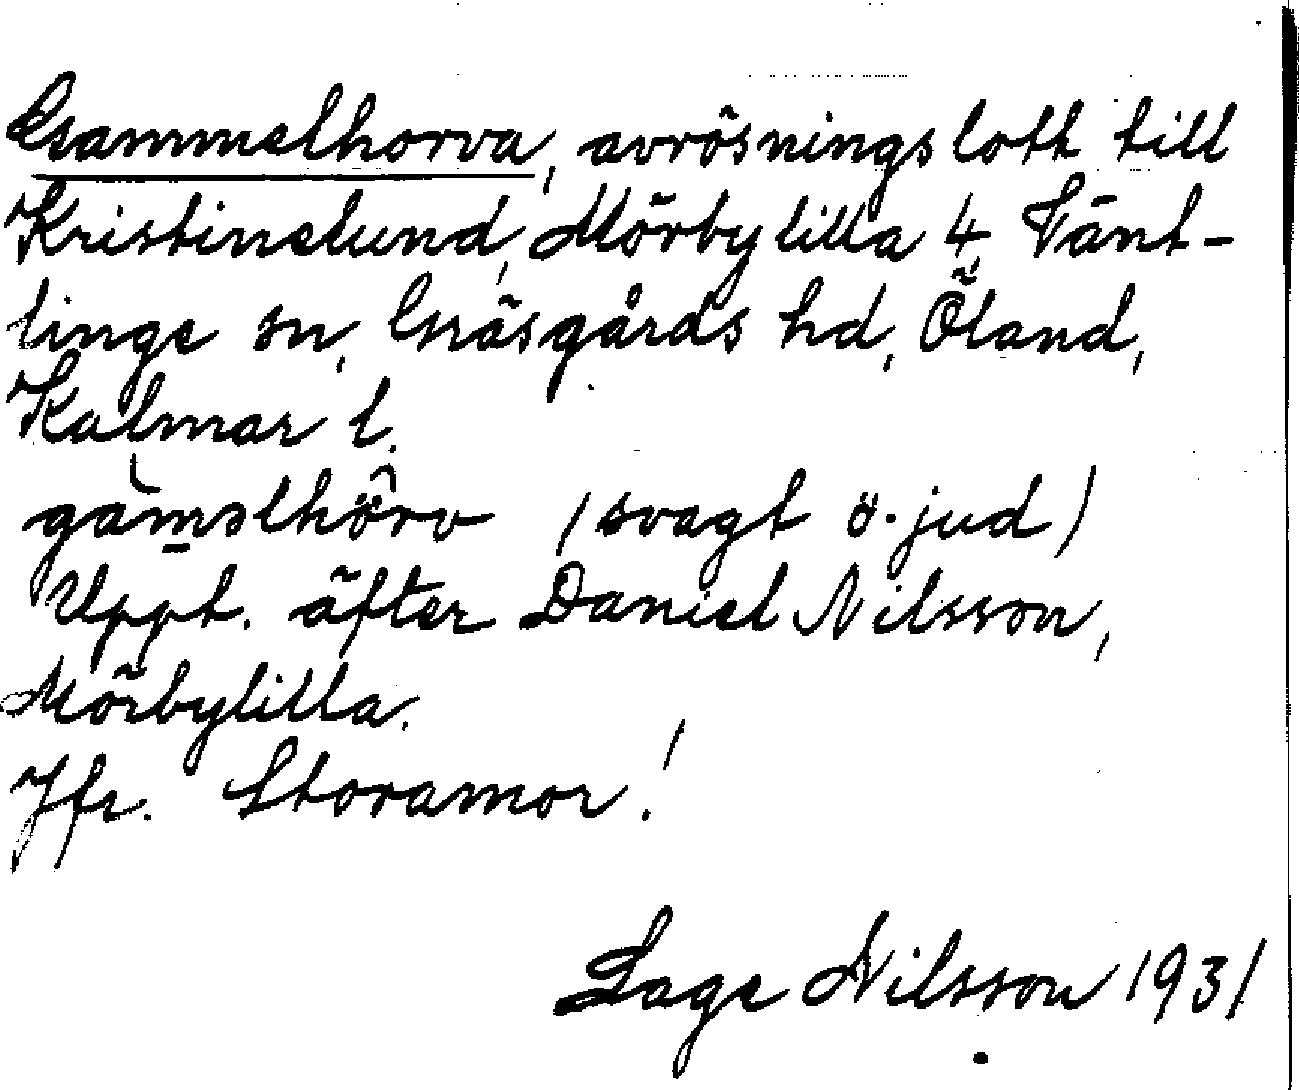 Gammelhorva, avrösningslott till
Kristinelund, Mörbylilla 4, Vänt-
linge sn, Gräsgårds hd, Öland,
Kalmar l.
gàm̱əlhörv (svagt ö-jud)
Uppt. äfter Daniel Nilsson,
Mörbylilla.
Jfr. Storamor!
Lage Nilsson 1931